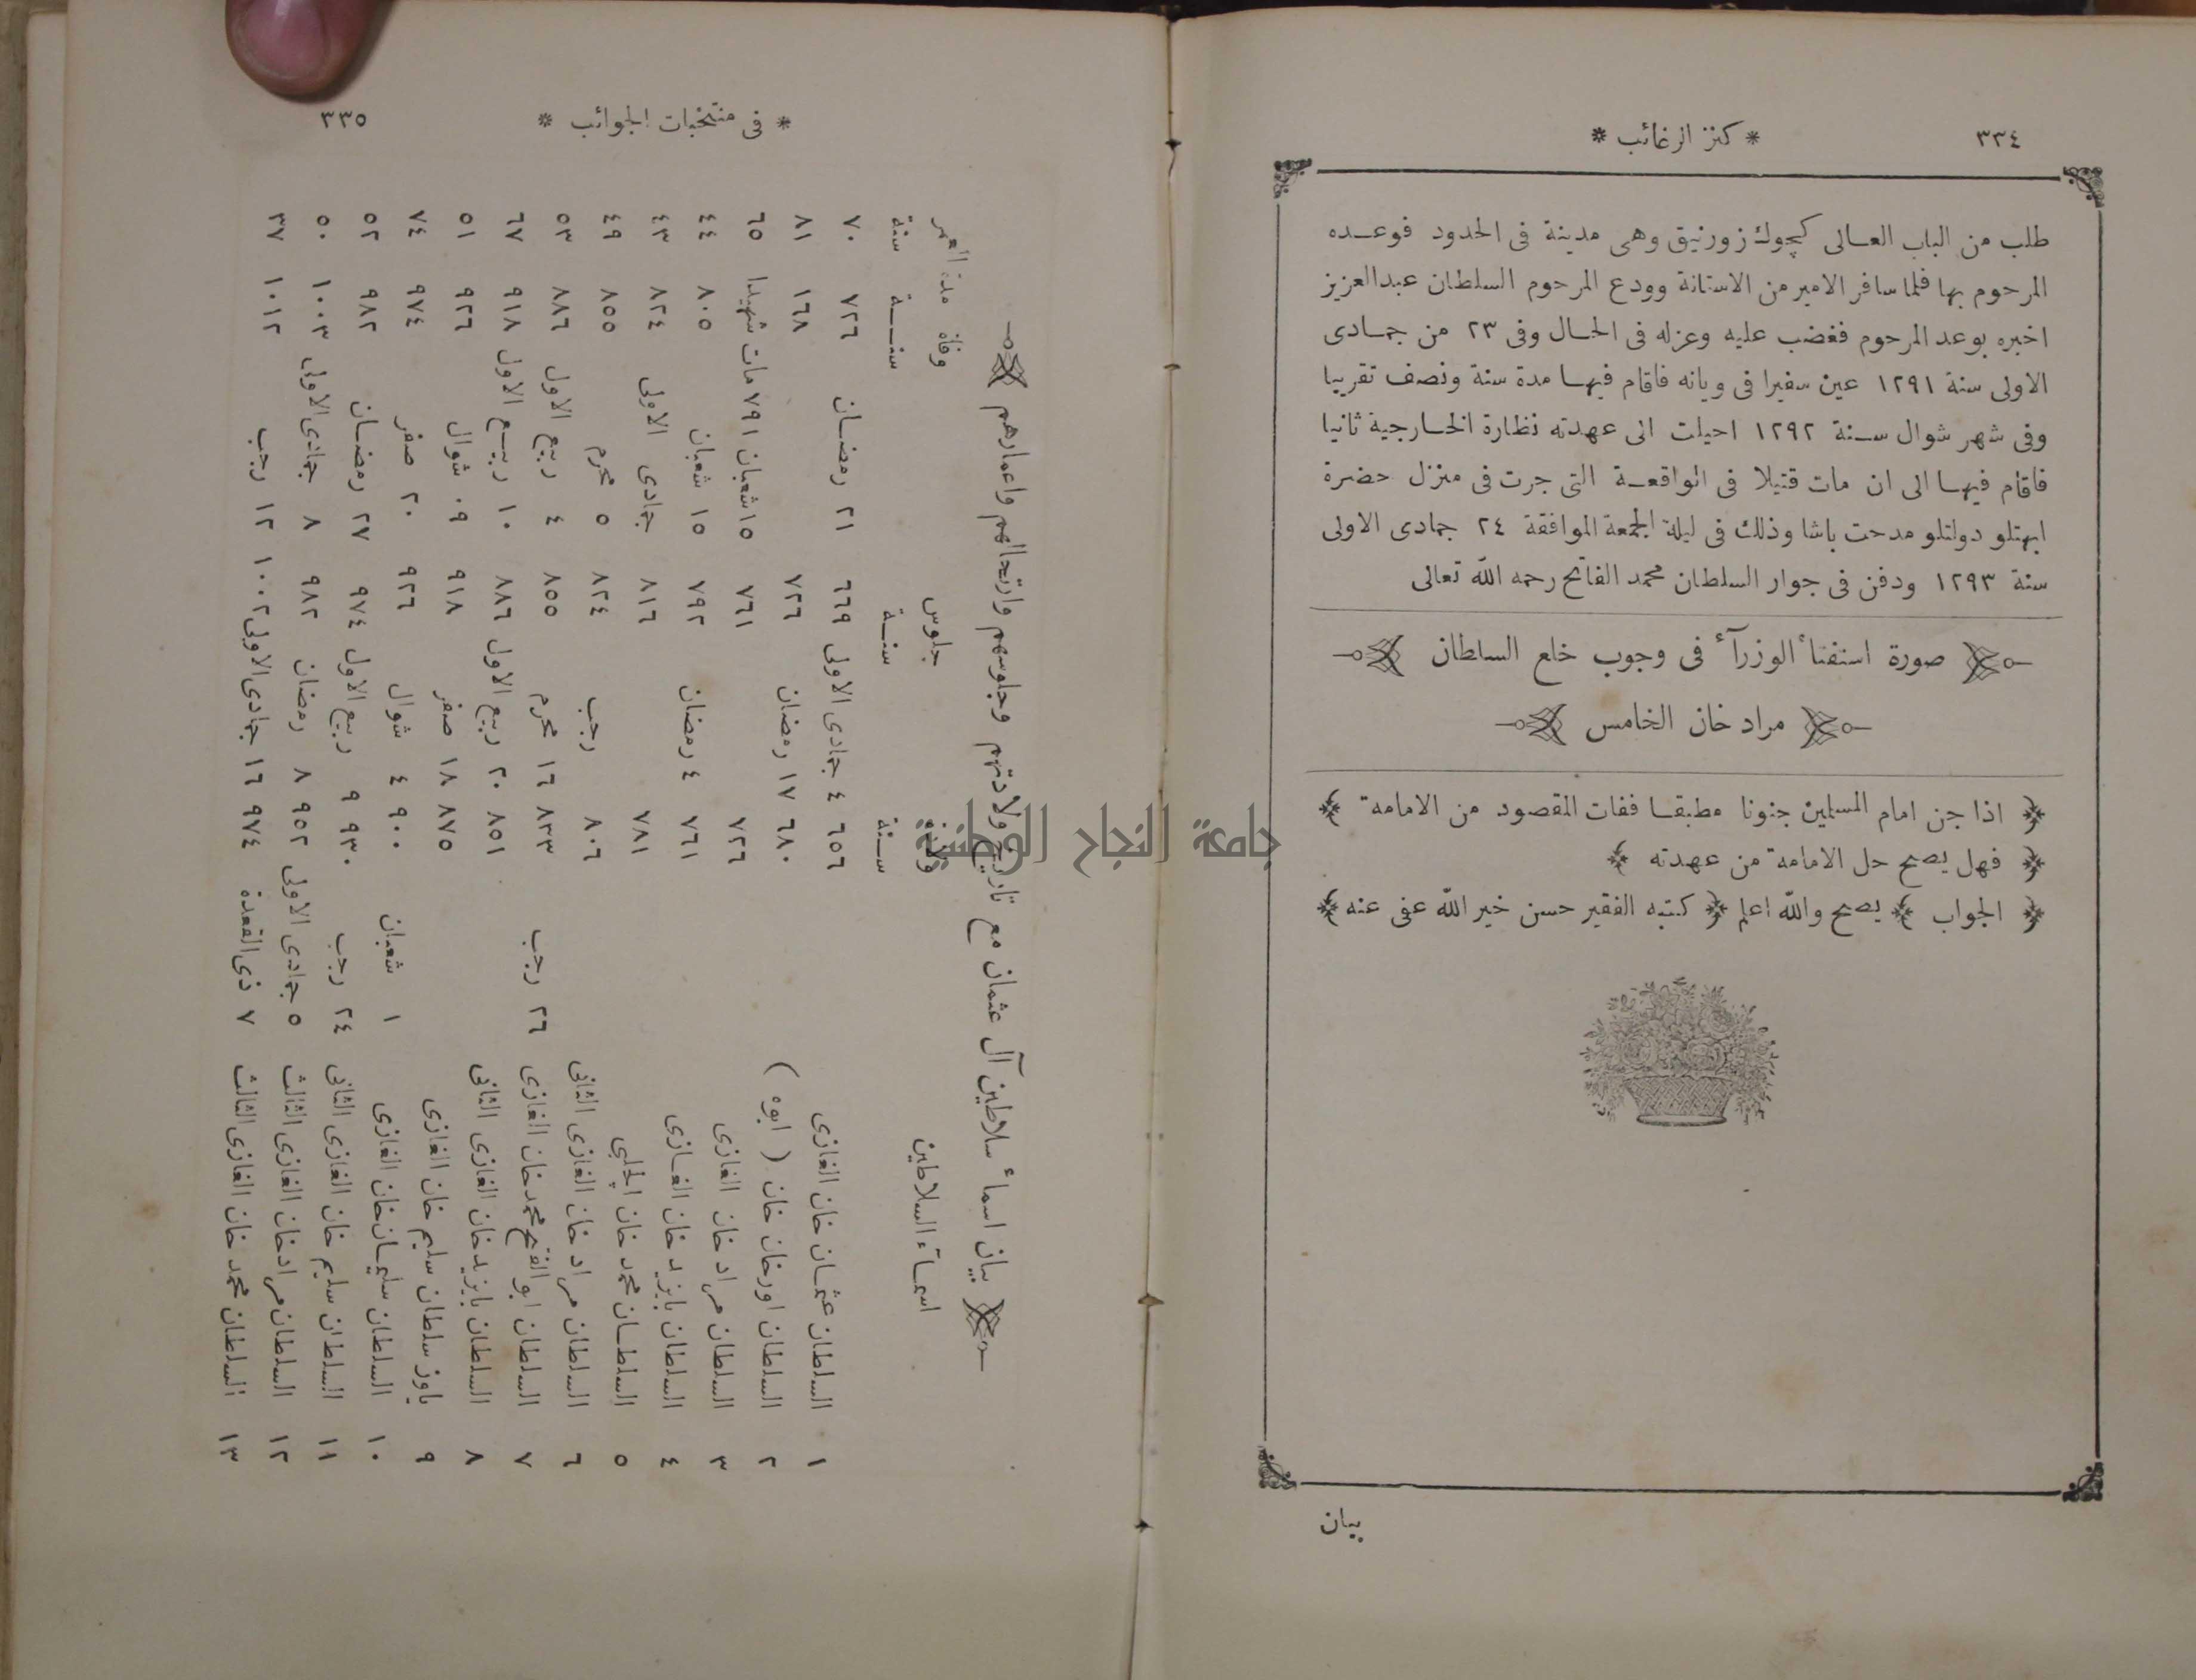 ٣٣٤
* كنز الرغائب *
طلب من الباب العالى كچوك زورنيق وهى مدينة فى الحدود فوعده
المرحوم بها فلما سافر الامير من الاستانة وودع المرحوم السلطان عبدالعزيز
اخبره بوعد المرحوم فغضب عليه وعزله فى الحال وفى ٢٣ من جمادى
الاولى سنة ١٢٩١ عين سفيرا فى ويانه فاقام فيها مدة سنة ونصف تقريبا
وفى شهر شوال سنة ١٢٩٢ احيلت الى عهدته نظارة الخارجية ثانيا
فاقام فيها الى ان مات قتيلا فى الواقعة التى جرت فى منزل حضرة
ابهتلو دولتلو مدحت باشا وذلك فى ليلة الجمعة الموافقة ٢٤ جمادى الاولى
سنة ١٢٩٣ ودفن فى جوار السلطان محمد الفاتح رحمه الله تعالى
صورة استفتاء الوزرآء فى وجوب خلع السلطان
مراد خان الخامس
﴿ اذا جن امام المسلمين جنونا مطبقا ففات المقصود من الامامة ﴾
﴿ فهل يصح حل الامامة من عهدته ﴾
﴿ الجواب ﴾ يصح والله اعلم ﴿ كتبه الفقير حسن خير الله عفى عنه ﴾
بيان
* فى منتخبات الجوائب *
٣٣٥
بيان اسماء سلاطين آل عثمان مع تاريخ ولادتهم وجلوسهم وارتحالهم واعمارهم
اسمآء السلاطين ولادة جلوس وفاة مدة العمر
سنة سنة سنة سنة
١ السلطان عثمان خان الغازى ٦٥٦ ٤ جمادى الاولى ٦٦٩ ٢١ رمضان ٧٢٦ ٧٠
٢ السلطان اورخان خان ( ابوه ) ٦٨٠ ١٧ رمضان ٧٢٦ ١٦٨ ٨١
٣ السلطان مراد خان الغازى ٧٢٦ ٧٦١ ١٥ شعبان ٧٩١ مات شهيدا ٦٥
٤ السلطان بايزيد خان الغازى ٧٦١ ٤ رمضان ٧٩٢ ١٥ شعبان ٨٠٥ ٤٤
٥ السلطان محمد خان الچلبى ٧٨١ ٨١٦ جمادى الاولى ٨٢٤ ٤٣
٦ السلطان مراد خان الغازى الثانى ٨٠٦ رجب ٨٢٤ ٥ محرم ٨٥٥ ٤٩
٧ السلطان ابو الفتح محمد خان الغازى ٢٦ رجب ٨٣٣ ١٦ محرم ٨٥٥ ٤ ربيع الاول ٨٨٦ ٥٣
٨ السلطان بايزيد خان الغازى الثانى ٨٥١ ٢٠ ربيع الاول ٨٨٦ ١٠ ربيع الاول ٩١٨ ٦٧
٩ ياوز سلطان سليم خان الغازى ٨٧٥ ١٨ صفر ٩١٨ ٠٩ شوال ٩٢٦ ٥١
١٠ السلطان سليمان خان الغازى ١ شعبان ٩٠٠ ٤ شوال ٩٢٦ ٢٠ صفر ٩٧٤ ٧٤
١١ السلطان سليم خان الغازى الثانى ٢٤ رجب ٩٣٠ ٩ ربيع الاول ٩٧٤ ٢٧ رمضان ٩٨٢ ٥٢
١٢ السلطان مراد خان الغازى الثالث ٥ جمادى الاولى ٩٥٢ ٨ رمضان ٩٨٢ ٨ جمادى الاولى ١٠٠٣ ٥٠
١٣ السلطان محمد خان الغازى الثالث ٧ ذى القعدة ٩٧٤ ١٦ جمادى الاولى ١٠٠٢ ١٢ رجب ١٠١٢ ٣٧
جامعة النجاح الوطنية